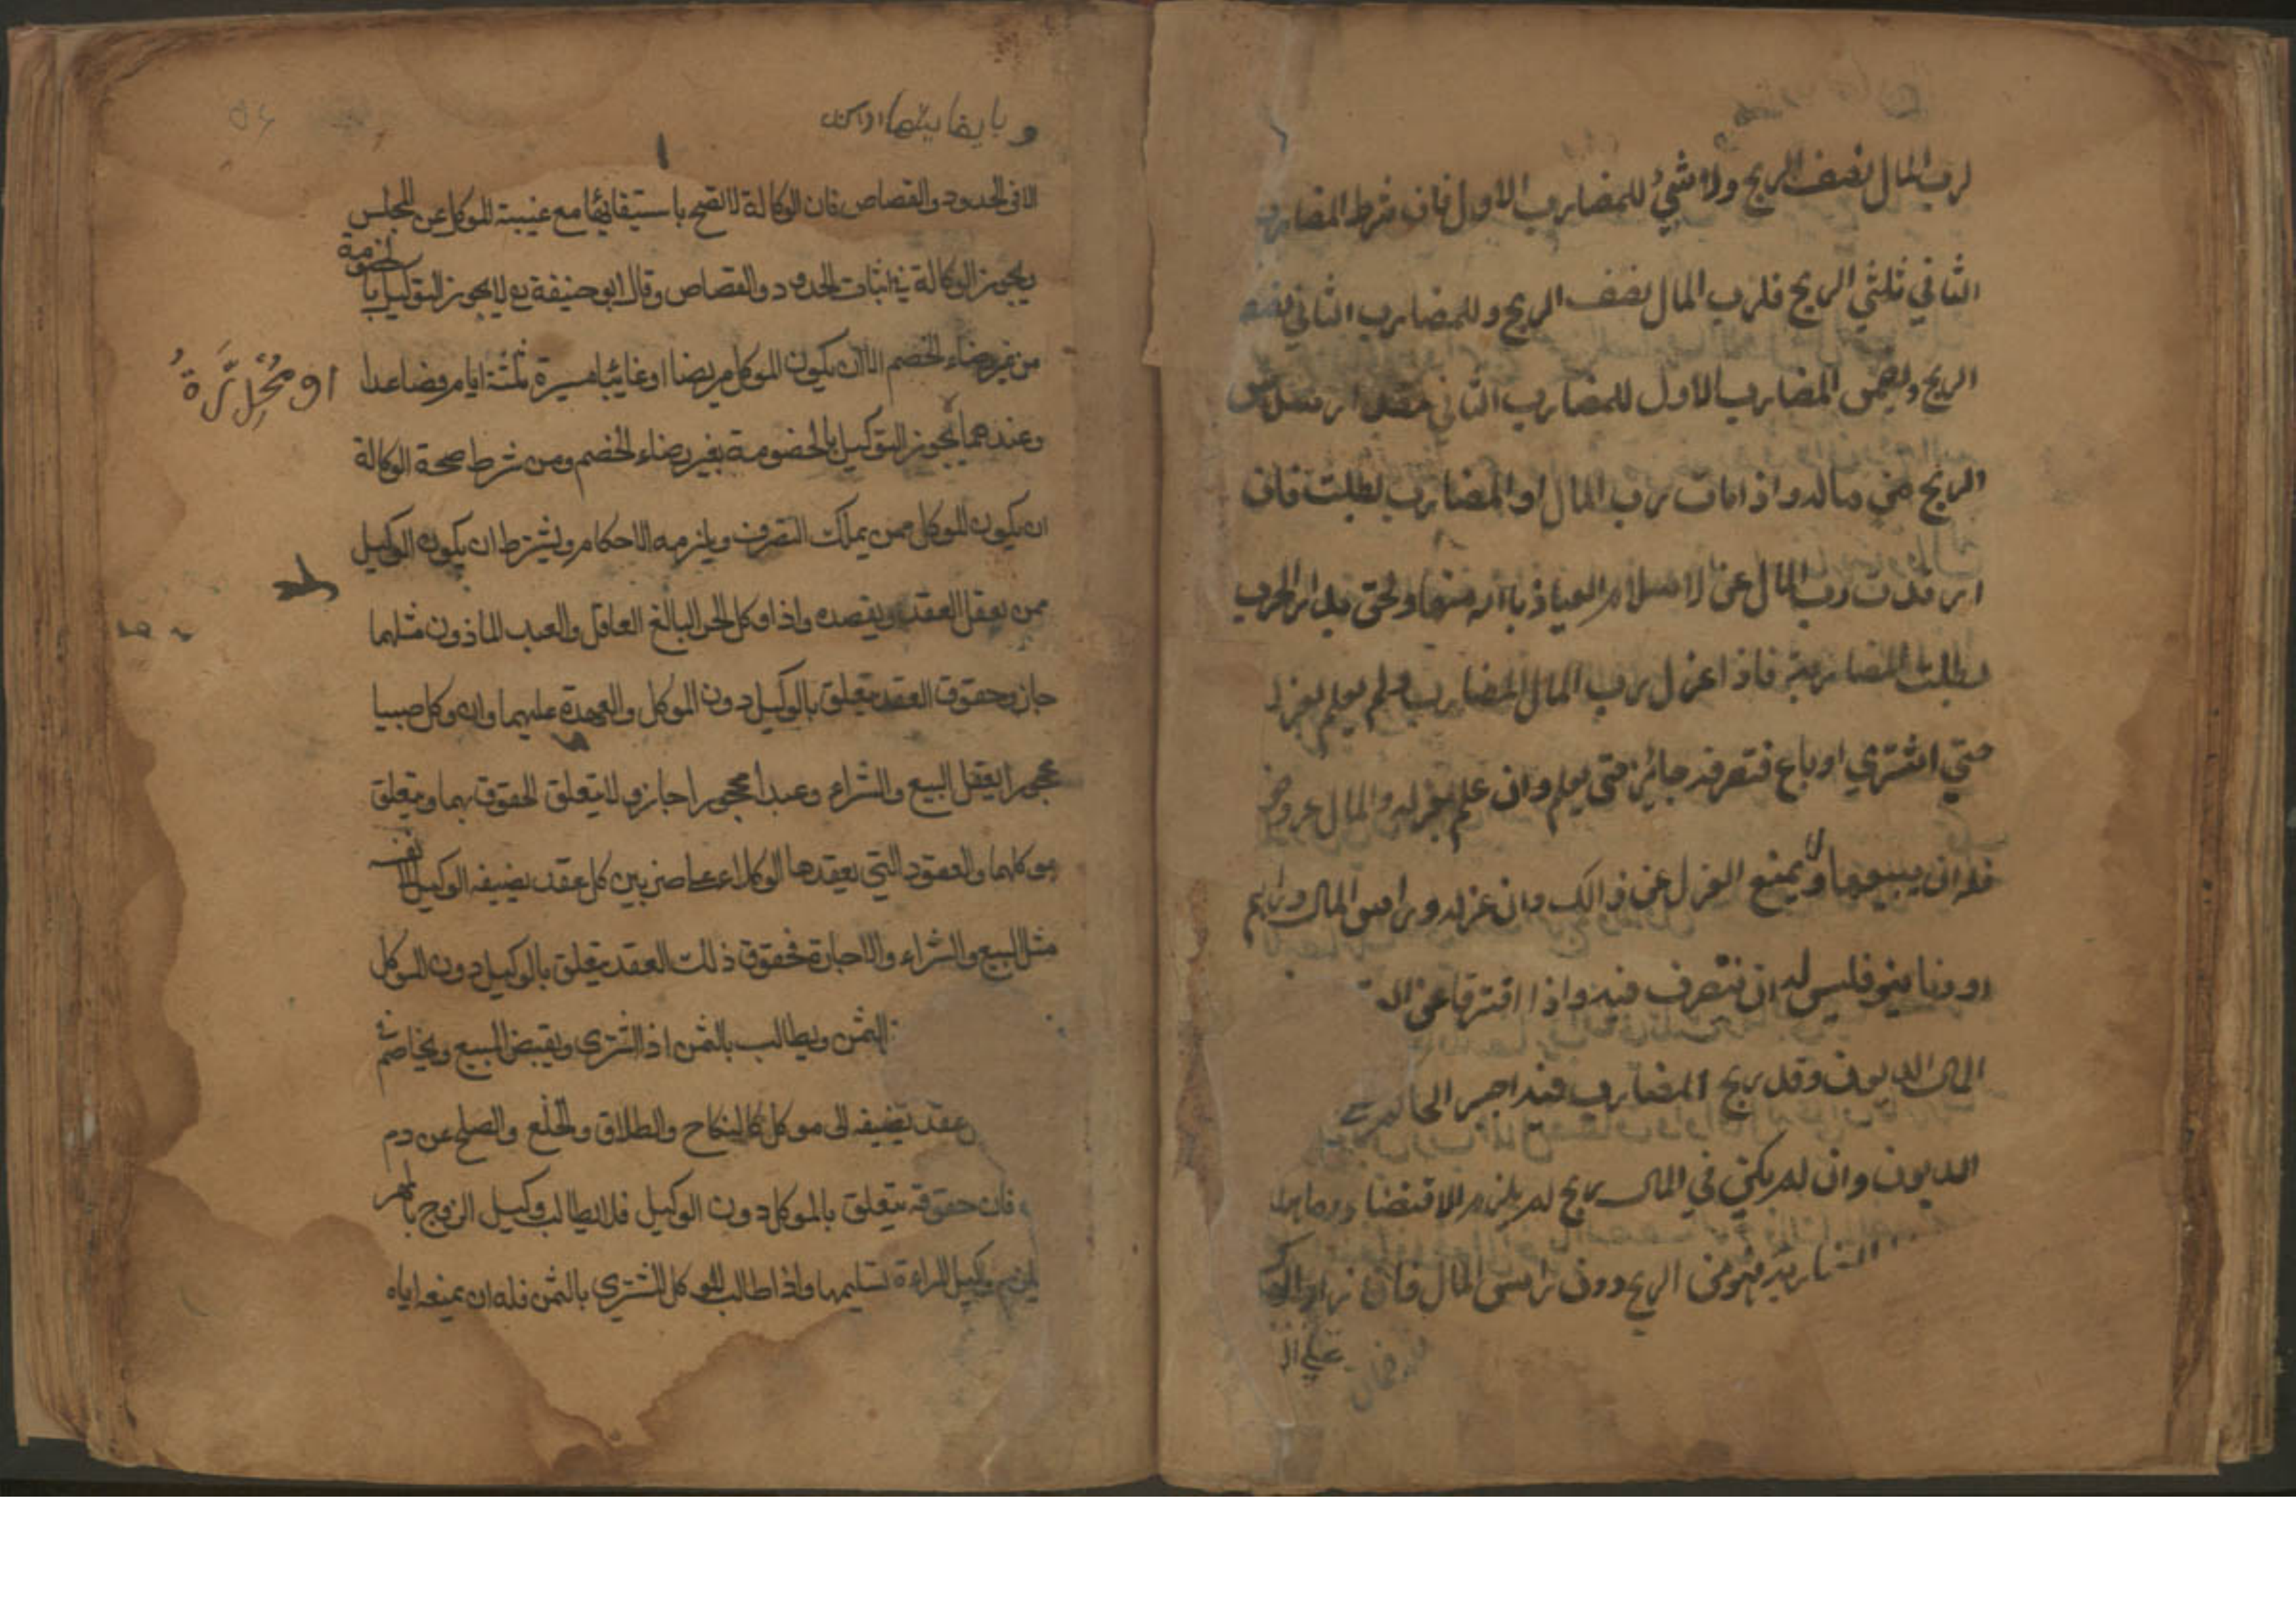 لرب المال نصف الربح ولا شيء للمضارب الاول فان شرط المضارب
الثاني ثلثي الربح فلرب المال نصف الربح وللمضارب الثاني نصف
الربح ويضمن المضارب الاول للمضارب الثاني مقدار سدس
الربح من ماله واذا مات رب المال او المضارب بطلت فان
ارتدت رب المال عن الاسلام العياذ بالله منها ولحق بدار الحرب
بطلت المضاربة فاذا عزل رب المال المضارب ولم يعلم بعزله
حتي اشتري او باع فتصرفه جائز حتى يعلم وان علم بعزله والمال عروض
فله ان يبيعها ولا يمنع العزل عن ذالك وان عزله وراس المال دراهم
او دنانير فليس له ان يتصرف فيه واذا افترقا عن الـ
المال الديون وقد ربح المضارب فيه اجبر الحاكم علي
الديون وان لم يكن في المال ربح لم يلزم الاقتضاء وما هلك
المضاربة فهو من الربح دون راس المال فان زاد الهالك
علي الر
و بايفايتها
الا في الحدود والقصاص فان الوكالة لا تصح باستيفائها مع غيبته للموكل عن المجلس
ويجوز الوكالة في اثبات الحدود والقصاص وقال ابو حنيفة رح لا يجوز التوكيل بالخصومة
من غير رضاء الخصم الا ان يكون الموكل مريضا او غائبا مسيرة ثلثة ايام فصاعدا
او مُخَدَّرَةٌ
وعندهما يجوز التوكيل بالخصومة بغير رضاء الخصم ومن شرط صحة الوكالة
ان يكون الموكل ممن يملك التصرف ويلزمه الاحكام ويشترط ان يكون الوكيل
ممن يعقل العقد ويقصده واذا وكل الحر البالغ العاقل والعبد الماذون مثلهما
جاز وحقوق العقد يتعلق بالوكيل دون الموكل والعهدة عليهما وان وكل صبيا
محجورا يعقل البيع والشراء وعبدا محجورا جاز ولا يتعلق الحقوق بهما ويتعلق
بموكلهما والعقود التي يعقدها الوكلاء علي ضربين كل عقد يضيفه الوكيل الي نفسه
مثل البيع والشراء والاجارة فحقوق ذلك العقد يتعلق بالوكيل دون الموكل
الثمن ويطالب بالثمن اذا اشترى ويقبض المبيع ويخاصم
عقد يضيفه الى موكله كالنكاح والطلاق والخلع والصلح عن دم
فان حقوقه يتعلق بالموكل دون الوكيل فلا يطالب وكيل الزوج بالمهر
يلزم وكيل المراءة تسليمها واذا طالب الموكل المشتري بالثمن فله ان يمنعه اياه